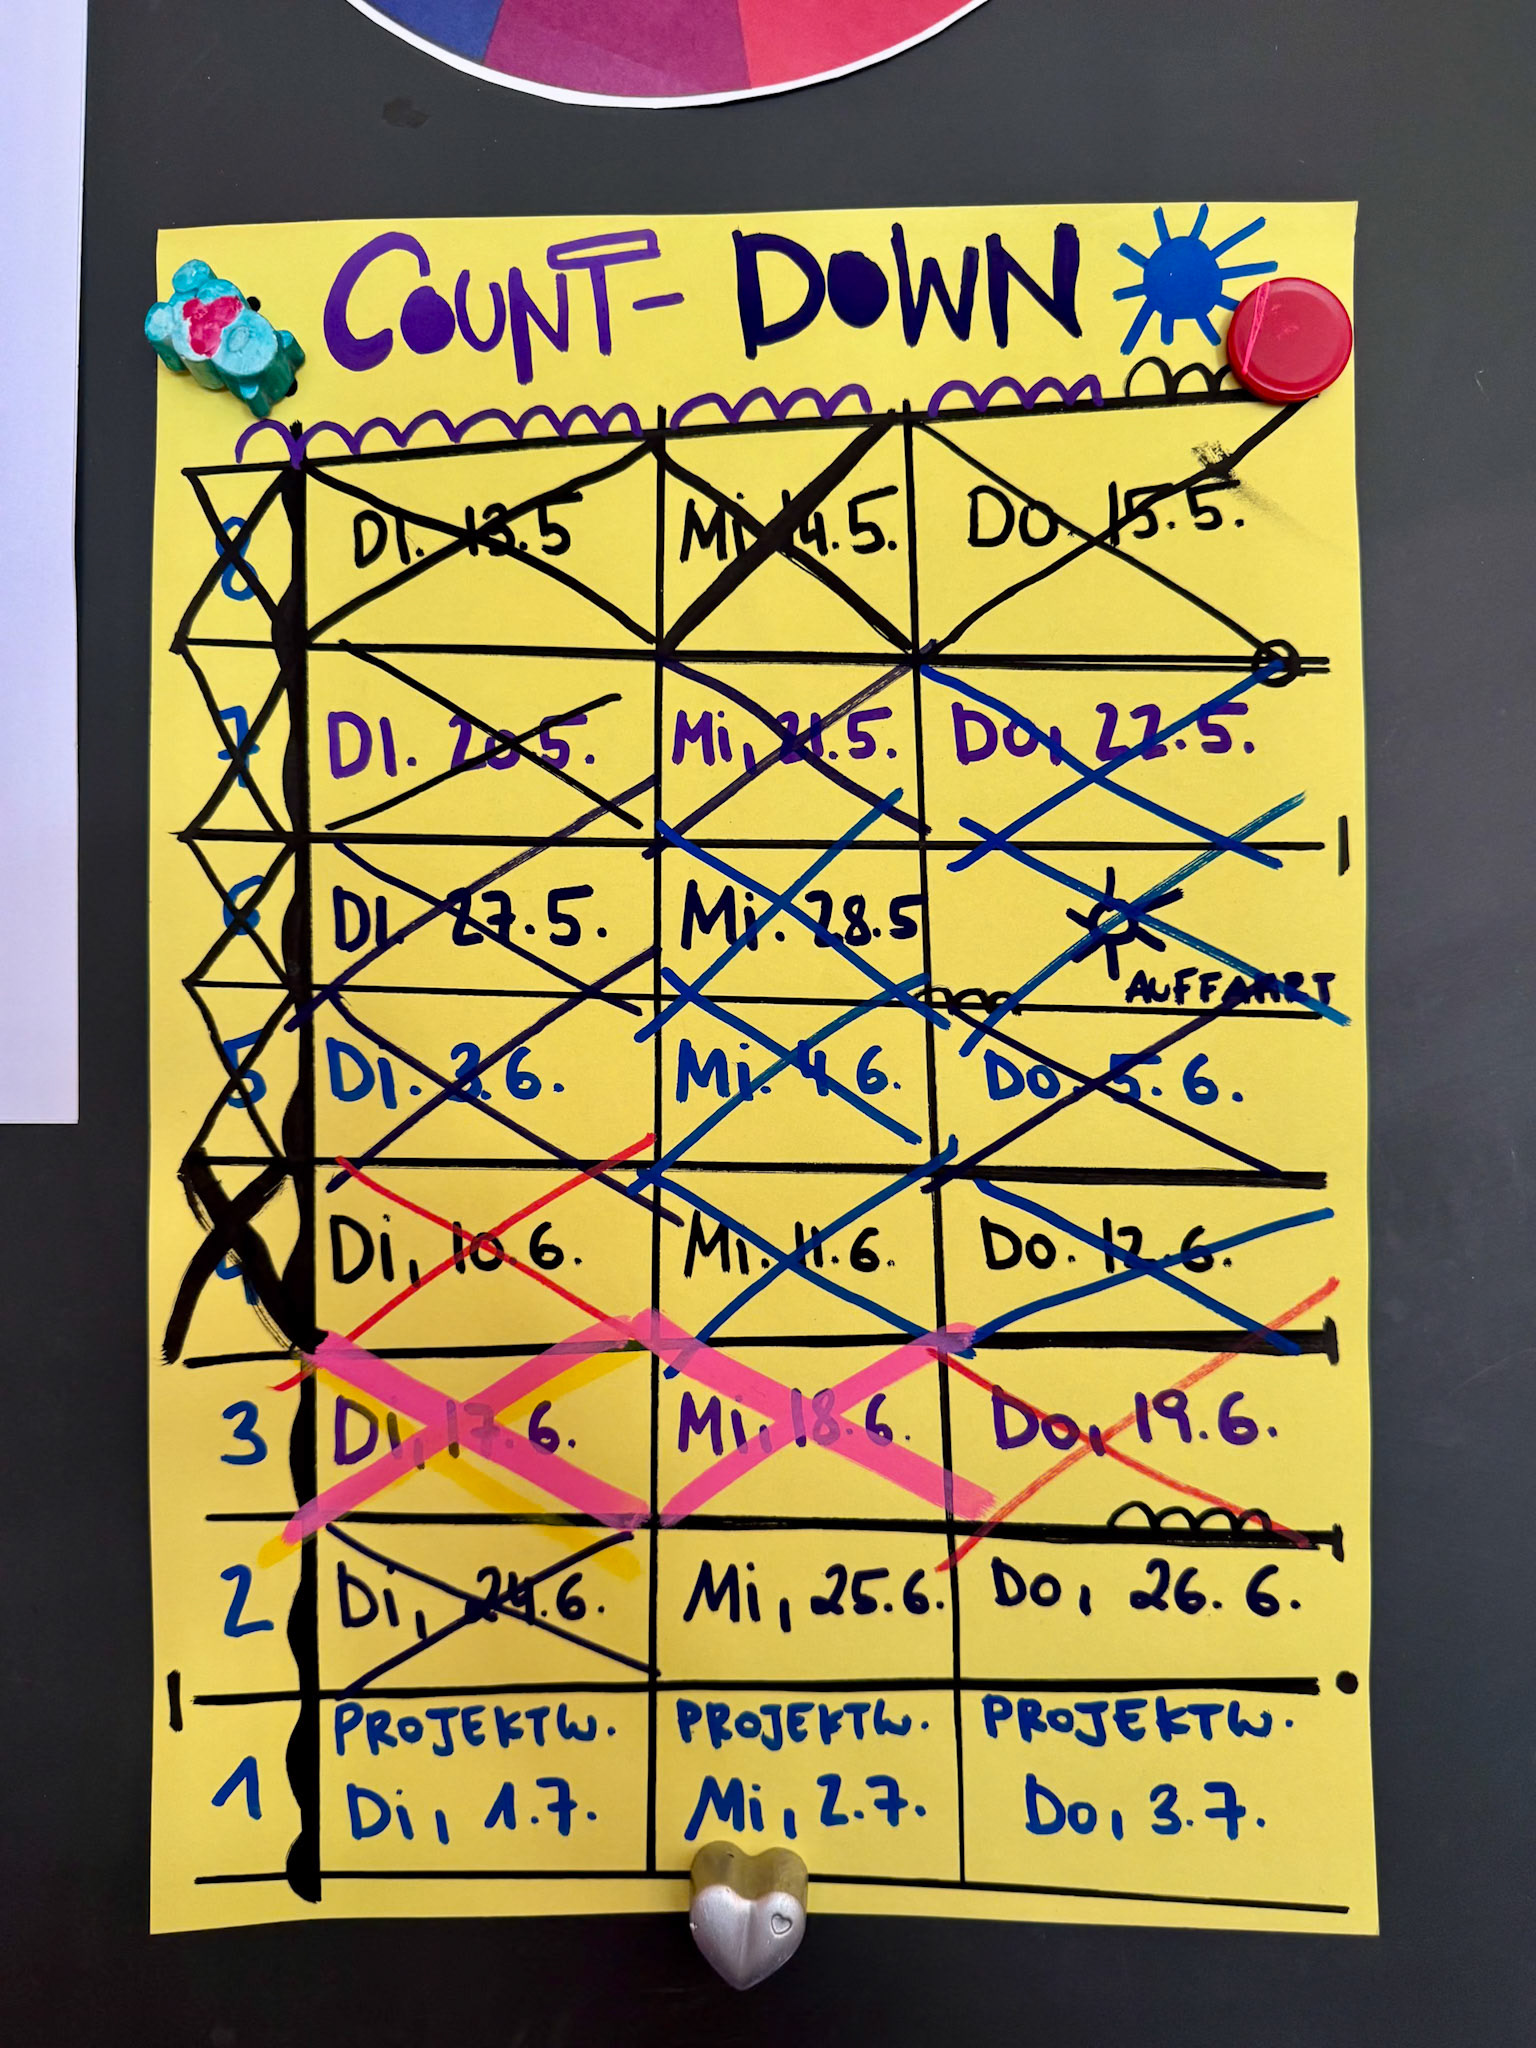 COUNT- DOWN
8 Di. 13.5 Mi. 14.5. Do. 15.5.
7 DI. 20.5. Mi, 21.5. Do, 22.5.
6 DI. 27.5. Mi. 28.5 AUFFAHRT
5 Di. 3.6. Mi. 4.6. Do. 5.6.
4 Di, 10.6. Mi. 11.6. Do. 12.6.
3 Di, 17.6. Mi, 18.6. Do, 19.6.
2 Di, 24.6. Mi, 25.6. Do, 26.6.
PROJEKTW. PROJEKTW. PROJEKTW.
1 Di, 1.7. Mi, 2.7. Do, 3.7.